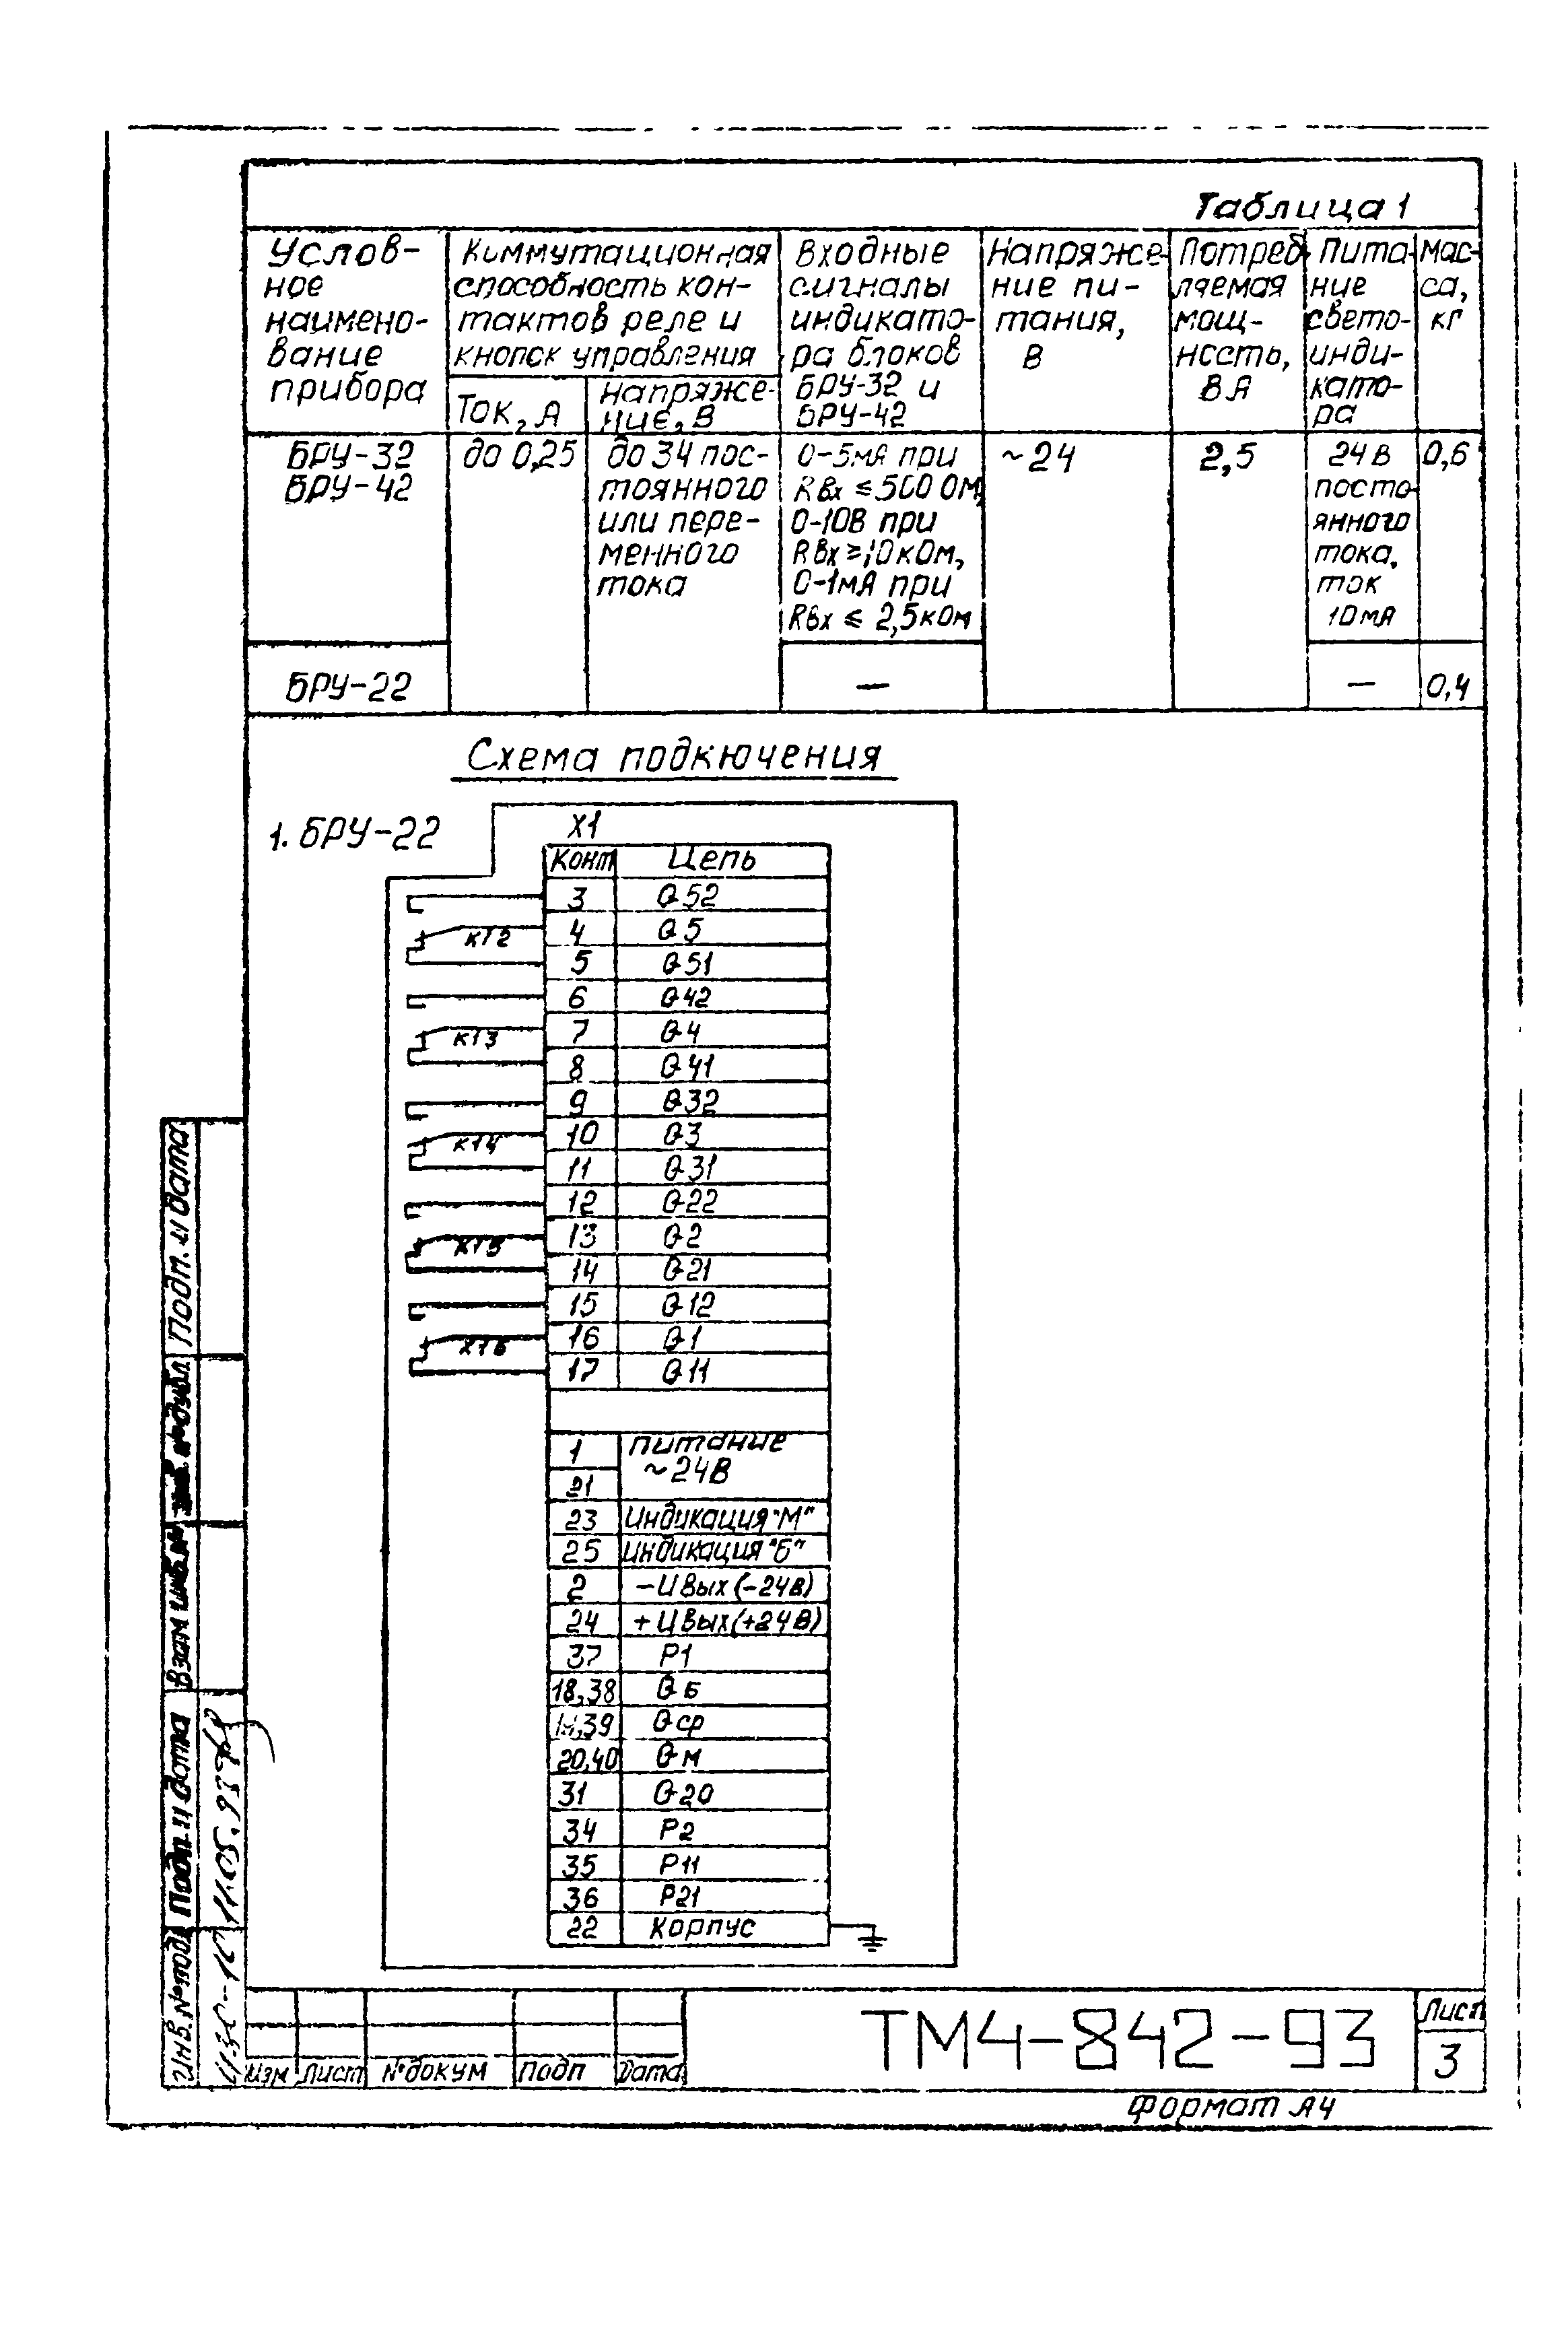 Таблица 1
Услов-
ное
наимено-
вание
прибора
Коммутационная
способность кон-
тактов реле и
кнопок управления
Ток, А
Напряже-
ние, В
Входные
сигналы
индикато-
ра блоков
БРУ-32 и
БРУ-42
Напряже-
ние пи-
тания,
В
Потреб
ляемая
мощ-
ность,
ВА
Пита-
ние
свето-
инди-
като-
ра
Мас-
са,
кг
БРУ-32
БРУ-42
до 0,25
до 34 пос-
тоянного
или пере-
менного
тока
0-5мА при
Rвх ≤ 500 Ом,
0-10В при
Rвх ≥ 10 кОм,
0-1мА при
Rвх ≤ 2,5кОм
~24
2,5
24 В
посто-
янного
тока,
ток
10 мА
0,6
БРУ-22
—
—
0,4
Схема подключения
1. БРУ-22
X1
Конт Цепь
3 Q52
4 Q5
КТ2
5 Q51
6 Q42
7 Q4
КТ3
8 Q41
9 Q32
10 Q3
КТ4
11 Q31
12 Q22
13 Q2
14 Q21
15 Q12
16 Q1
17 Q11
1 питание
~24В
21
23 Индикация "М"
25 индикация "Б"
2 -Uвых (-24В)
24 +Uвых (+24В)
37 P1
18,38 Qб
39 Qср
20,40 Qм
31 Q20
34 P2
35 P11
36 P21
22 Корпус
Подп. и дата
дубл
Взам инв №
Подп. и дата
11.05.93
Инв. № подл
Изм Лист № докум Подп Дата
ТМ4-842-93
Лист
3
Формат А4